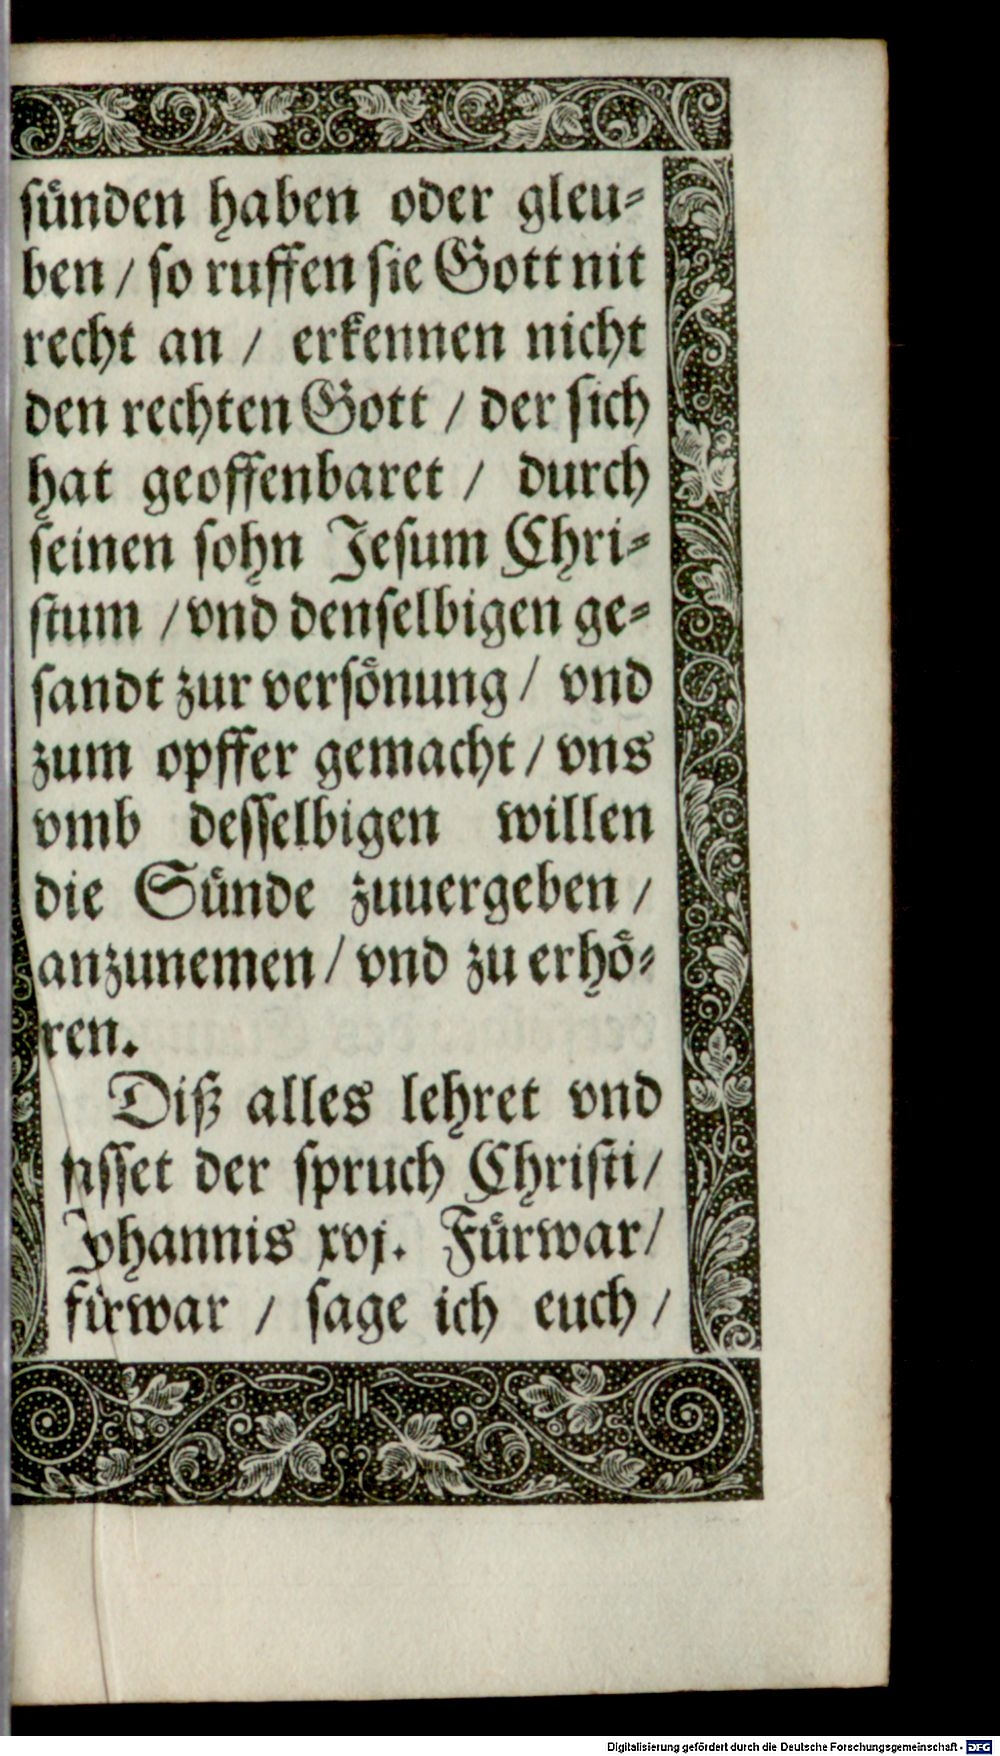 sünden haben oder gleu-
ben / so ruffen sie Gott nit
recht an / erkennen nicht
den rechten Gott / der sich
hat geoffenbaret / durch
seinen sohn Jesum Chri-
stum / vnd denselbigen ge-
sandt zur versönung / vnd
zum opffer gemacht / vns
vmb desselbigen willen
die Sünde zuuergeben /
anzunemen / vnd zu erhö-
ren.
Diß alles lehret vnd
fasset der spruch Christi /
Johannis xvj. Fürwar /
fürwar / sage ich euch /
Digitalisierung gefördert durch die Deutsche Forschungsgemeinschaft - DFG